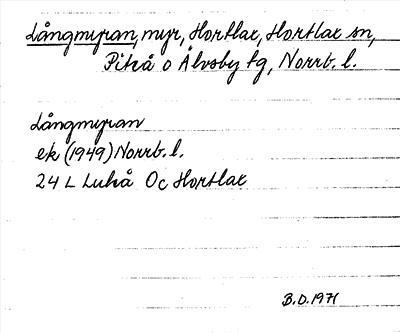 Långmyran, myr, Hortlax, Hortlax sn,
Piteå o Älvsby tg, Norrb. l.
Långmyran
ek (1949) Norrb. l.
24 L Luleå 0c Hortlax
B.D. 1971